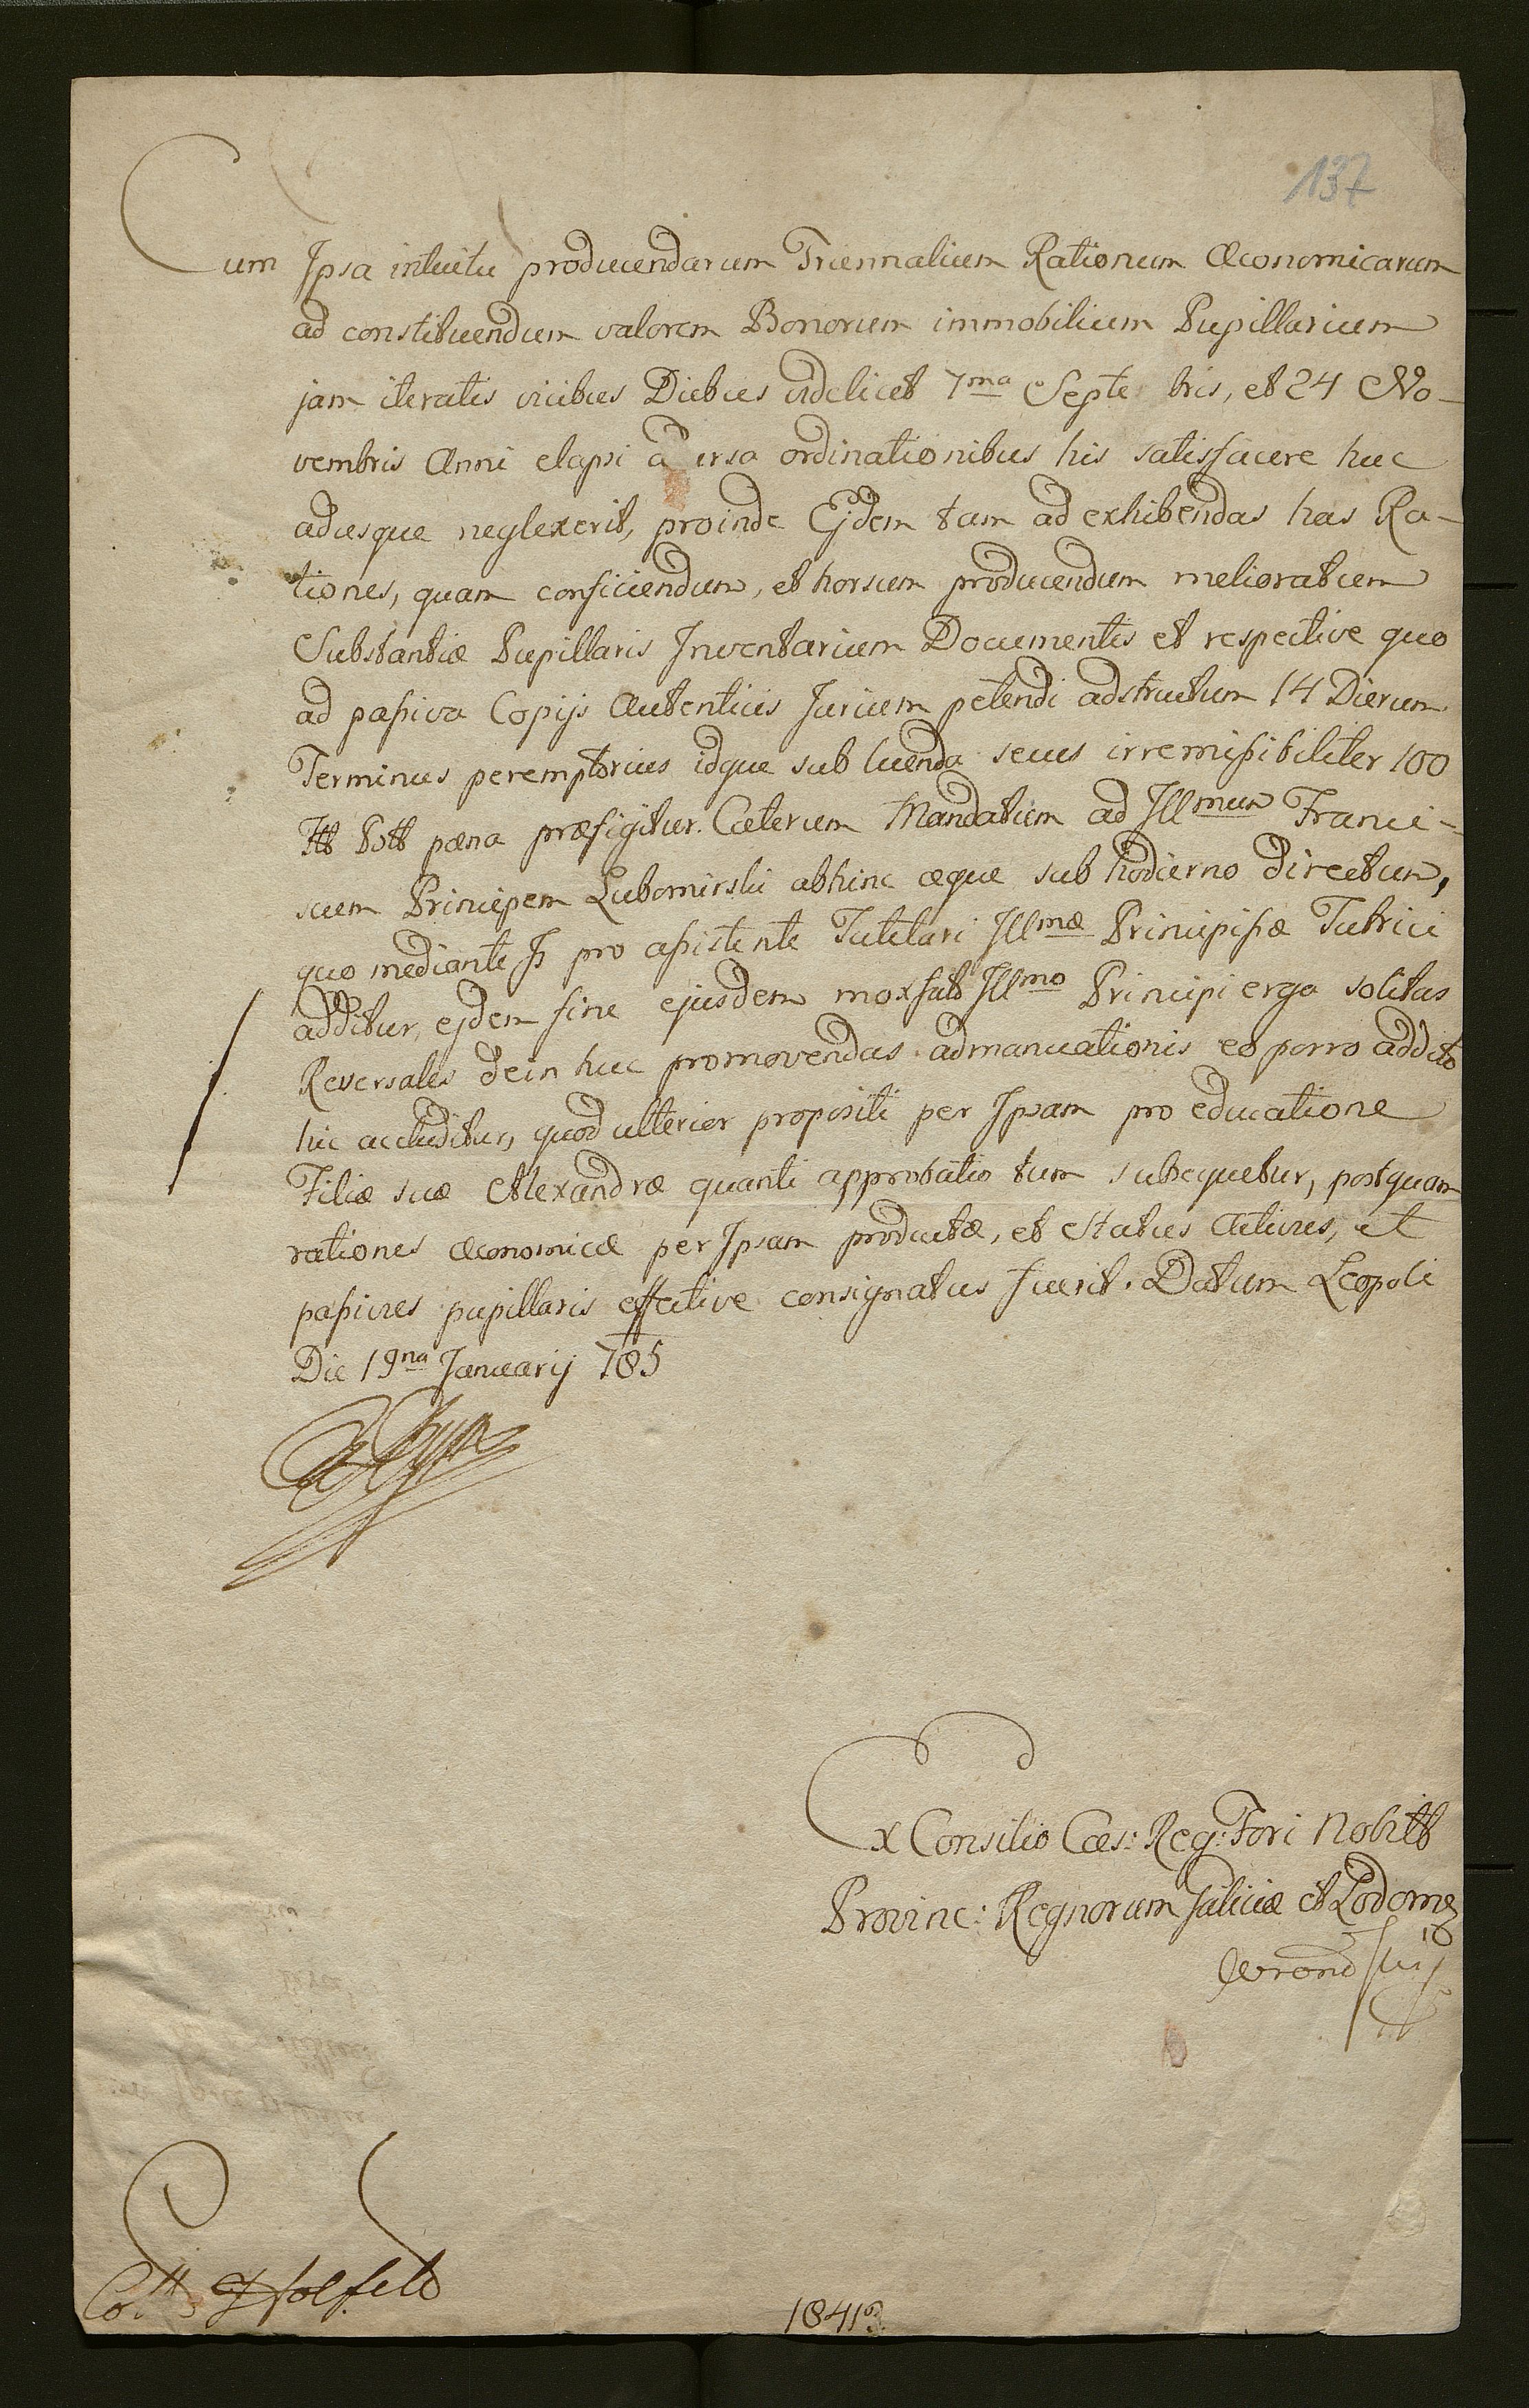 137
Cum Ipsa intuitu producendarum Triennalium Rationum Œconomicarum
ad constituendum valorem Bonorum immobilium Pupillarium
jam iteratis vicibus Diebus videlicet 7ma Septe bris, et 24 No-
vembris Anni elapsi a ersa ordinationibus his satisfacere huc
adusque neglexerit, proinde Ejdem tam ad exhibendas has Ra-
tiones, quam conficiendum, et horsum producendum melioratum
Substantiæ Pupillaris Inventarium Documentis et respective quo
ad passiva Copijs Autenticis Jurium petendi adstructum 14 Dierum
Terminus peremptorius idque sub luenda secus irremissibiliter 100
pæna præfigitur. Cæterum Mandatum ad Illmum Franci-
scum Principem Lubomirski abhinc æque sub hodierno directum,
quo mediante Is pro assistente Tutelari Illmæ Principissæ Tutrici
additur, ejdem fine ejusdem moxfato Illmo Principi erga solitas
Reversales dein huc promovendas admanuationis eo porro addito
hic accluditur, quod ulterior propositi per Ipsam pro educatione
Filiæ suæ Alexandræ quanti approbatio tum subsequetur, postquam
rationes œconomicæ per Ipsam productæ, et Status Activus, et
passivus pupillaris effective consignatus fuerit. Datum Leopoli
Die 19na Januarij 785
Ex Consilio Cæs: Reg: Fori Nobilt
Provinc: Regnorum Galiciæ et Lodome
18413